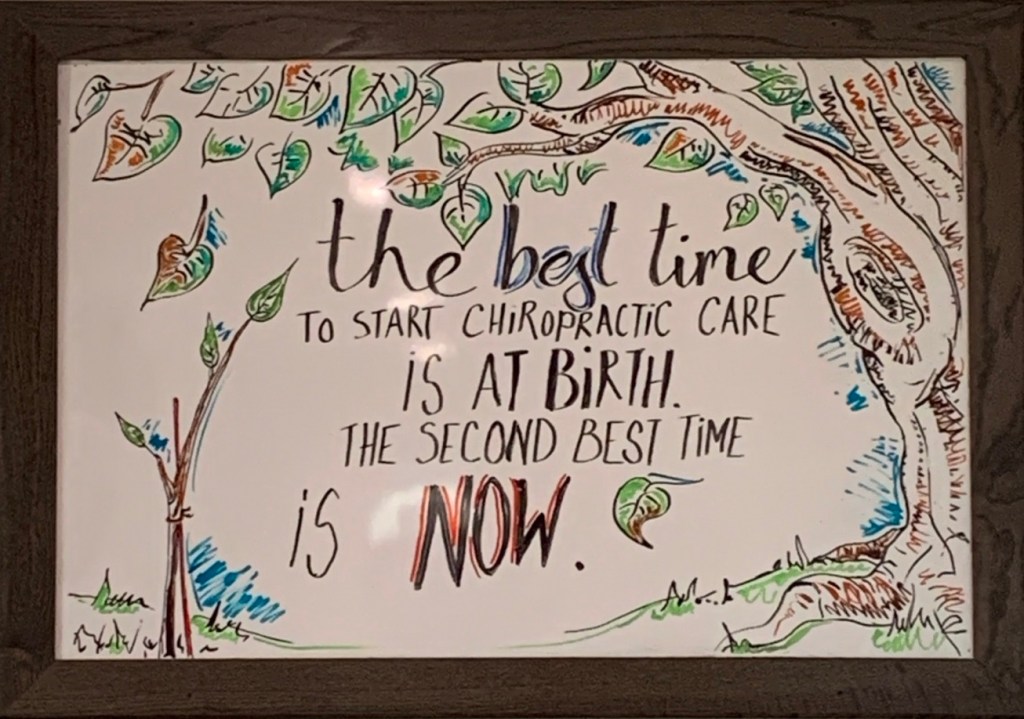 the best time
TO START CHiROPRACTiC CARE
iS AT BiRTH.
THE SECOND BEST TiME
iS NOW.